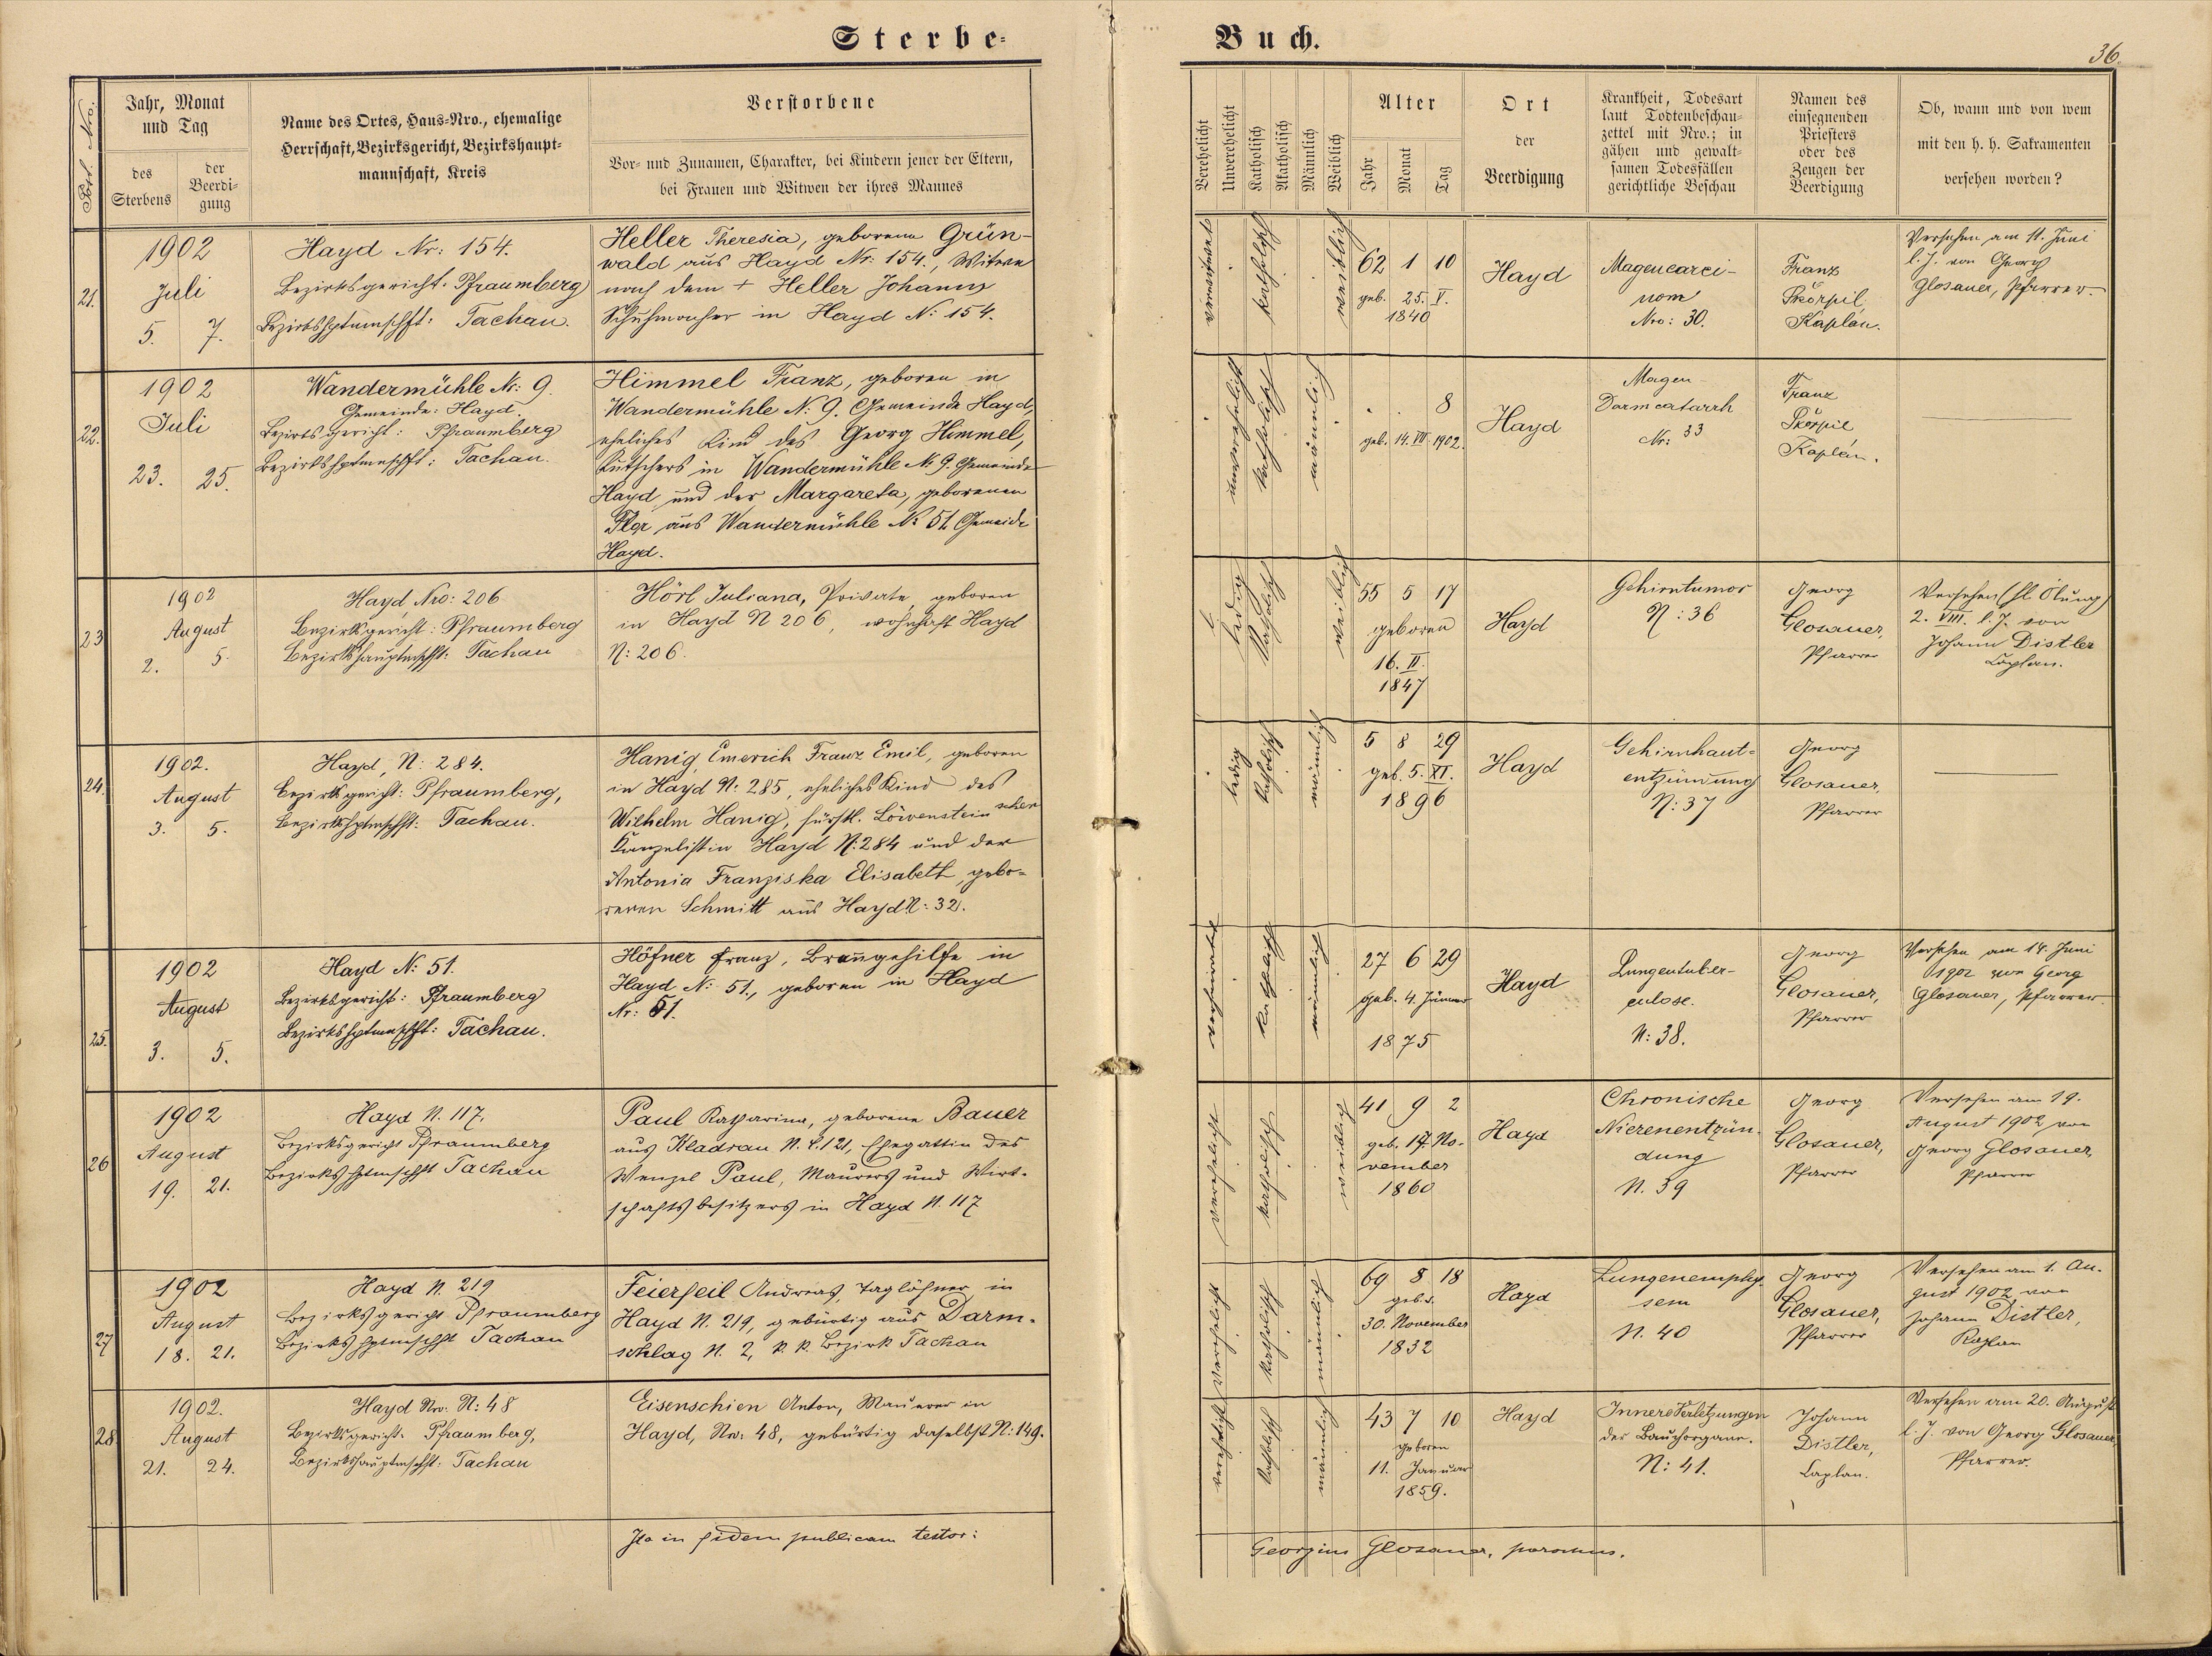 Sterbe-
Buch.
36.
Fort. Nro.
Jahr, Monat
und Tag
des
Sterbens
der
Beerdi-
gung
Name des Ortes, Haus-Nro., ehemalige
Herrschaft, Bezirksgericht, Bezirkshaupt-
mannschaft, Kreis
Verstorbene
Vor- und Zunamen, Charakter, bei Kindern jener der Eltern,
bei Frauen und Witwen der ihres Mannes
Verehelicht
Unverehelicht
Katholisch
Akatholisch
Männlich
Weiblich
Alter
Jahr
Monat
Tag
Ort
der
Beerdigung
Krankheit, Todesart
laut Todtenbeschau-
zettel mit Nro.; in
gähen und gewalt-
samen Todesfällen
gerichtliche Beschau
Namen des
einsegnenden
Priesters
oder des
Zeugen der
Beerdigung
Ob, wann und von wem
mit den h. h. Sakramenten
versehen worden?
21.
1902
Juli
5. 7.
Hayd Nr: 154.
Bezirksgericht: Pfraumberg
Bezirkshptmschft: Tachau.
Heller Theresia, geborene Grün-
wald aus Hayd Nr: 154., Witwe
nach dem + Heller Johann
Schuhmacher in Hayd N: 154.
verwitwet
katholisch
weiblich
62 1 10
geb. 25. V.
1840
Hayd
Magencarci-
nom
Nro: 30.
Franz
Škorpil
Kaplán.
Versehen am 11. Juni
l. J. von Georg
Glosauer, Pfarrer.
22.
1902
Juli
23. 25.
Wandermühle Nr: 9.
Gemeinde: Hayd.
Bezirksgericht: Pfraumberg
Bezirkshptmschft: Tachau.
Himmel Franz, geboren in
Wandermühle N: 9. Gemeinde Hayd,
eheliches Kind des Georg Himmel,
Kutschers in Wandermühle N: 9. Gemeinde
Hayd und der Margareta, geborenen
aus Wandermühle N: 51 Gemeide
Hayd.
unverehelicht
katholisch
männlich
8
geb. 14. VII. 1902.
Hayd
Magen
Darmcatarrh
Nr: 33
Franz
Škorpil
Kaplán.
23
1902
August
2. 5.
Hayd, Nro: 206
Bezirksgericht: Pfraumberg
Bezirkshauptmschft: Tachau
Hörl Juliana, Private, geboren
in Hayd N 206, wohnhaft Hayd
N: 206.
ledig
katholisch
weiblich
55 5 17
geboren
16. II.
1847
Hayd
Gehirntumor
N: 36
Georg
Glosauer,
Pfarrer
Versehen (hl. Ölung)
2. VIII. l. J. von
Johann Distler
Caplan.
24.
1902.
August
3. 5.
Hayd, N: 284.
Bezirksgericht: Pfraumberg,
Bezirkshptmschft: Tachau.
Hanig Emerich Franz Emil, geboren
in Hayd N: 285, eheliches Kind des
Wilhelm Hanig, fürstl. Löwenstein'schen
Kanzelist in Hayd N: 284 und der
Antonia Franziska Elisabeth, gebo-
renen Schmitt aus Hayd N: 32.
ledig
katholisch
männlich
5 8 29
geb. 5. XI.
1896
Hayd
Gehirnhaut-
entzündung
N: 37
Georg
Glosauer,
Pfarrer
25.
1902
August
3. 5.
Hayd N: 51.
Bezirksgericht: Pfraumberg
Bezirkshptmschft: Tachau.
Höfner Franz, Braugehilfe in
Hayd N: 51., geboren in Hayd
Nr: 51.
verheiratet
katholisch
männlich
27 6 29
geb. 4. Jänner
1875
Hayd
Lungentuber-
culose.
N: 38.
Georg
Glosauer,
Pfarrer
Versehen am 14. Juni
1902 von Georg
Glosauer, Pfarrer.
26
1902
August
19. 21.
Hayd N. 117.
Bezirksgericht Pfraumberg
Bezirkshptmschft Tachau
Paul Katharina, geborene Bauer
aus Kladrau N. C. 121, Ehegattin des
Wenzel Paul, Maurers und Wirt-
schaftsbesitzers in Hayd N. 117
verehelicht
katholisch
weiblich
41 9 2
geb. 17. No-
vember
1860
Hayd
Chronische
Nierenentzün-
dung
N. 39
Georg
Glosauer,
Pfarrer
Versehen am 19.
August 1902 von
Georg Glosauer,
Pfarrer
27
1902
August
18. 21.
Hayd N. 219
Bezirksgericht Pfraumberg
Bezirkshptmschft Tachau
Feierfeil Andreas, Taglöhner in
Hayd N. 219, gebürtig aus Darm-
schlag N. 2, k. k. Bezirk Tachau
verehelicht
katholisch
männlich
69 8 18
geb.
30. November
1832
Hayd
Lungenemphy-
sem
N. 40
Georg
Glosauer,
Pfarrer
Versehen am 1. Au-
gust 1902 von
Johann Distler,
Kaplan
28
1902.
August
21. 24.
Hayd Nro. N: 48
Bezirksgericht: Pfraumberg,
Bezirkshauptmschft: Tachau
Eisenschien Anton, Maurer in
Hayd, Nro: 48, gebürtig daselbst N: 149.
verehelicht
katholisch
männlich
43 7 10
geboren
11. Januar
1859.
Hayd
Innere Verletzungen
der Bauchorgane.
N: 41.
Johann
Distler,
Caplan.
Versehen am 20. August
l. J. von Georg Glosauer,
Pfarrer.
Ita in fidem publicam testor:
Georgius Glosauer, parochus.